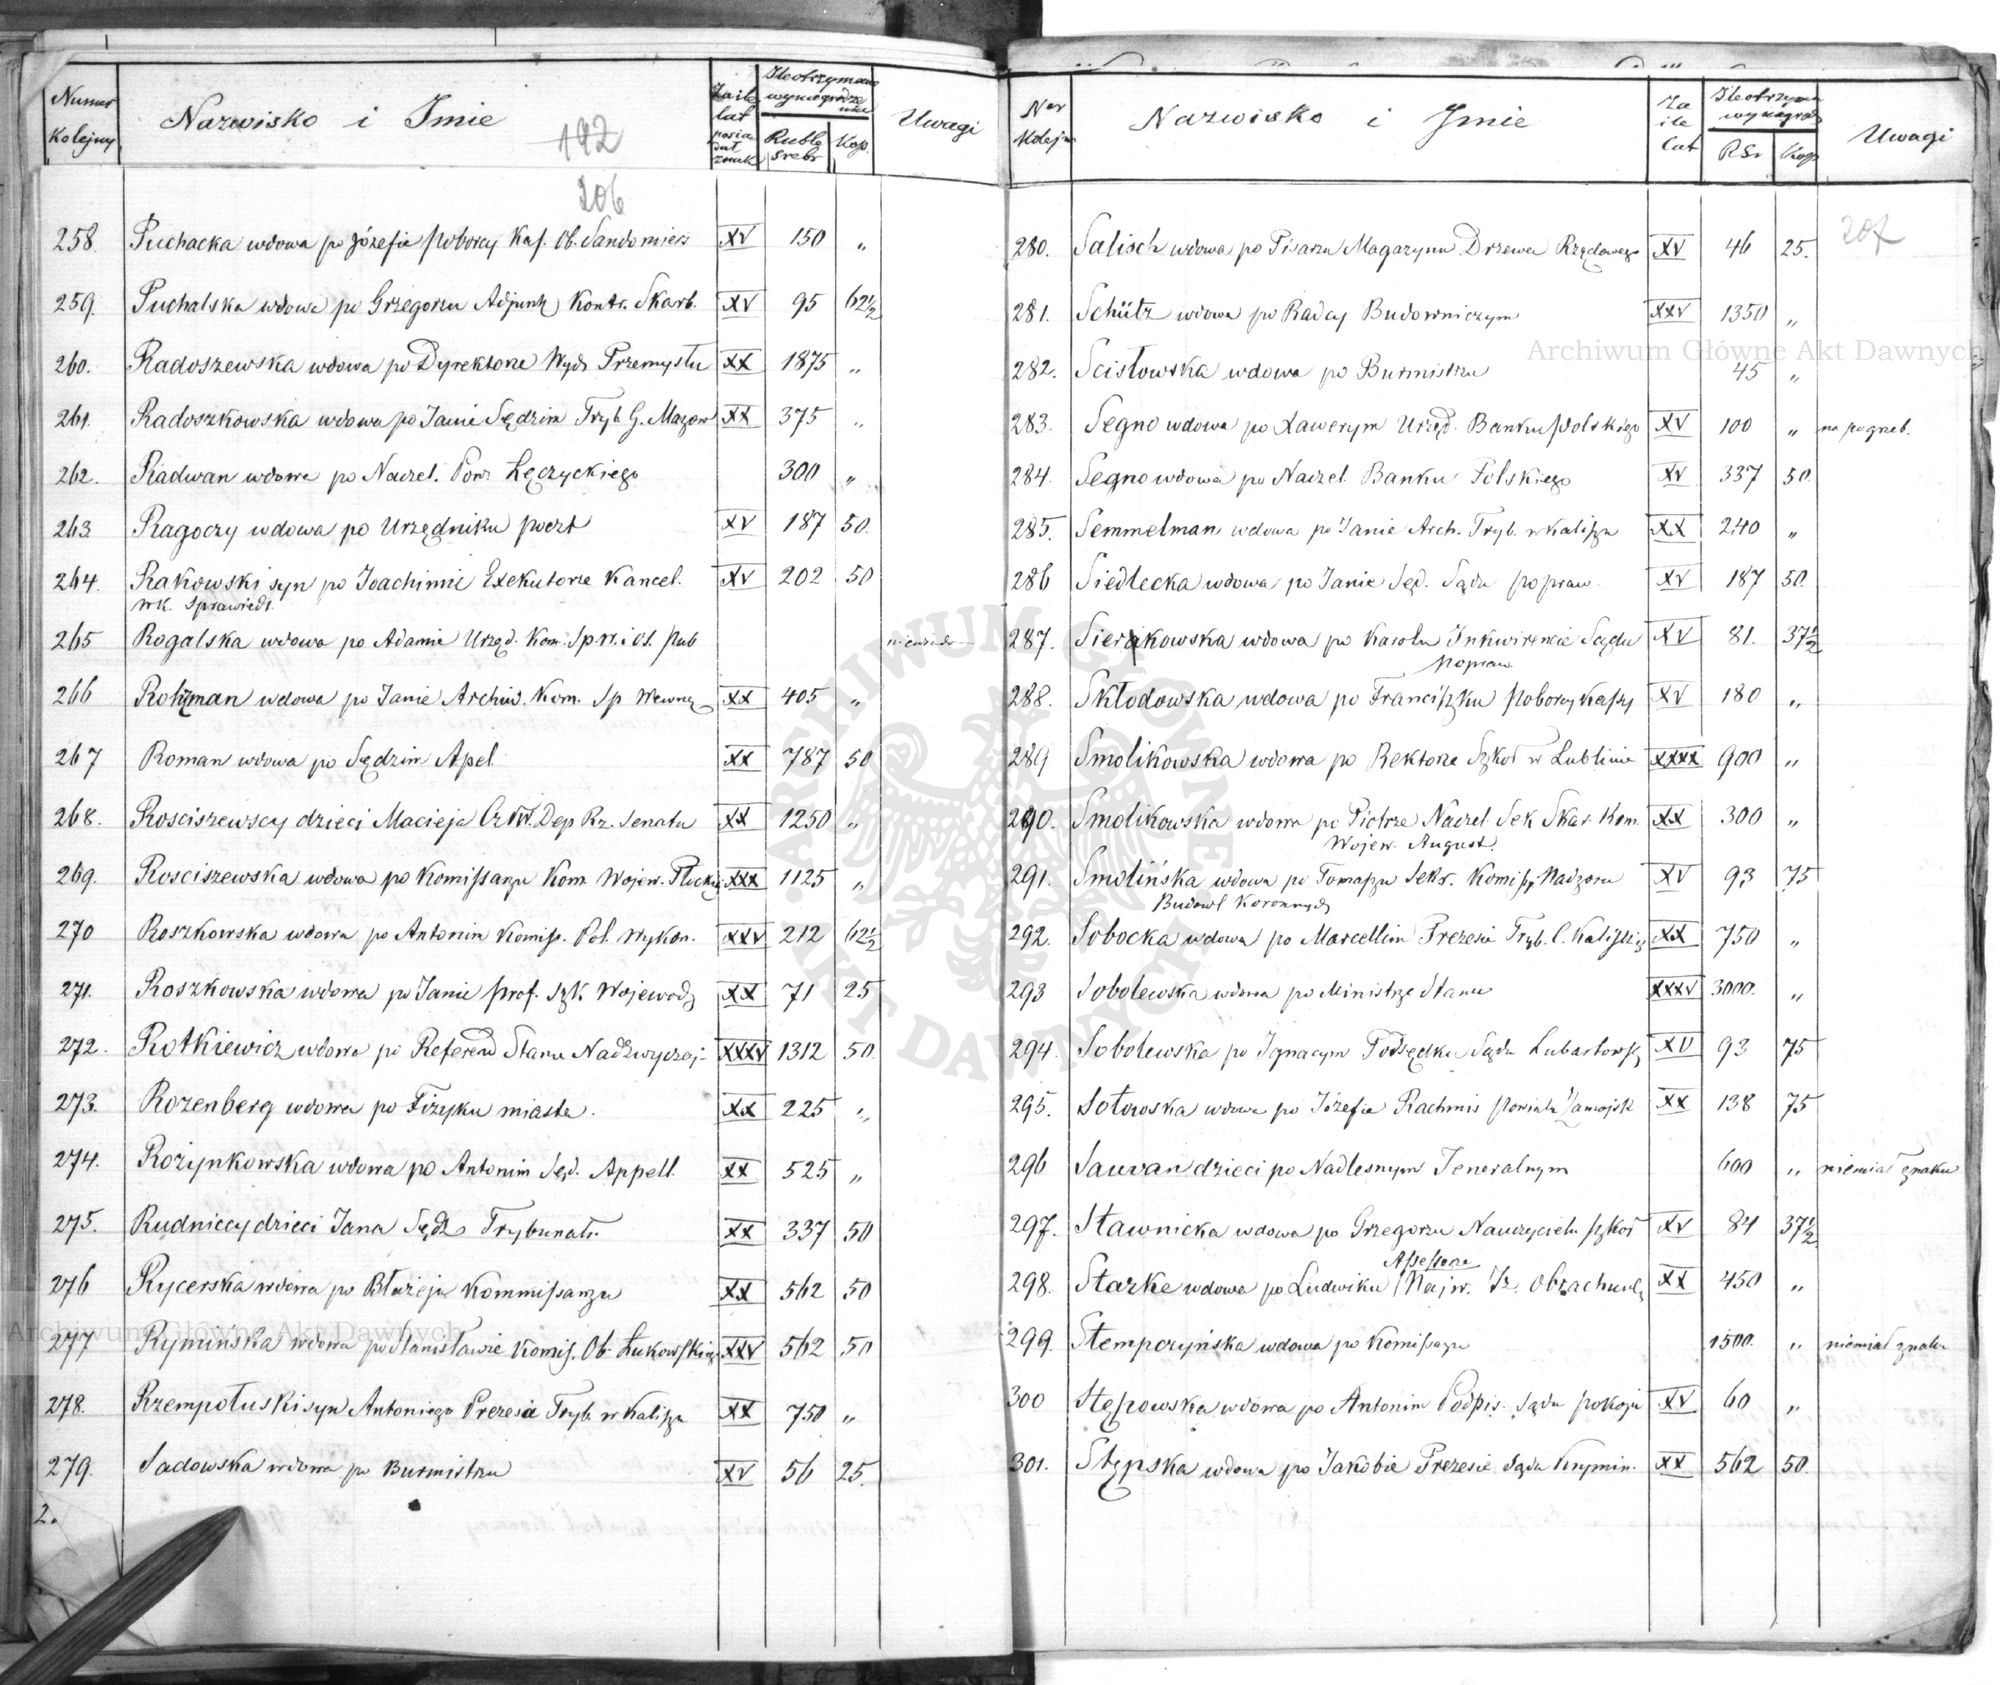 Numer Kolejny
Nazwisko i Imie
Za ile lat posia dał znak
Ile otrzymano wynagrodze nia
Ruble srebr
Kop.
Uwagi
192
206
258. Puchacka wdowa po Józefie Poborcy Kas. Ob. Sandomiers XV 150 „
259. Puchalska wdowa po Grzegorzu Adjunk Kontr. Skarb. XV 95 62½
260. Radoszewska wdowa po Dyrektorze Wydz Przemysłu XX 1875 „
261. Radoszkowska wdowa po Janie Sędzim Tryb G. Mazow XX 375 „
262. Radwan wdowa po Naczel. Pow. Łęczyckiego 300 „
263 Ragoczy wdowa po Urzędniku poczt XV 187 50.
264. Rakowski syn po Joachimie Exekutorze Kancel. XV 202 50
w K. Sprawiedl.
265 Rogalska wdowa po Adamie Urzęd. Kom. Spr. i Oś. Pub
266 Rohman wdowa po Janie Archiw. Kom. Sp Wewnę XX 405 „
267 Roman wdowa po Sędzim Apel. XX 787 50
268. Rosciszewscy dzieci Macieja Dep Rz. Senatu XX 1250 „
269. Rosciszewska wdowa po Komissarzu Kom. Wojew. Płockiej XXX 1125 „
270 Roszkowska wdowa po Antonim Komiss. Pol. Wykon. XXV 212 62½
271. Roszkowska wdowa po Janie prof. Szk. Wojewodz XX 71 25
272. Rotkiewicz wdowa po Referend Stanu Nadzwyczaj- XXXV 1312 50.
273. Rozenberg wdowa po Fizyku miasta. XX 225 „
274. Rożynkowska wdowa po Antonim Sęd. Appell. XX 525 „
275. Rudniccy dzieci Jana Sędz Trybunału. XX 337 50
276 Rycerska wdowa po Błażeju Kommissarzu XX 562 50
277 Rymińska wdowa po Stanisławie Komis. Ob. Łukowskieg XXV 562 50
278. Rzempołuski syn Antoniego Prezesa Tryb. w Kaliszu XX 750 „
279. Sadowska wdowa po Burmistrzu XV 56 25.
2.
Ner Kolejn
Nazwisko i Imie
Za ile lat
Ile otrzyma wynagrodz
RSr
Kop
Uwagi
207
280. Salisch wdowa po Pisarzu Magazynu Drzewa Rządowego XV 46 25.
281. Schütz wdowa po Radcy Budowniczym XXV 1350 „
282. Scisłowska wdowa po Burmistrzu 45 „
283. Segno wdowa po Xawerym Urzęd. Banku Polskiego XV 100 „ na pogrzeb.
284. Segno wdowa po Naczel. Banku Polskiego XV 337 50.
285. Semmelman wdowa po Janie Arch. Tryb. w Kaliszu XX 240 „
286 Siedlecka wdowa po Janie Sęd. Sądu popraw. XV 187 50.
287. Sierakowska wdowa po Karolu Inkwirencie Sądu XV 81. 37½
Popraw.
288. Skłodowska wdowa po Franciszku Poborcy Kassy XV 180 „
289 Smolikowska wdowa po Rektorze Szkół w Lublinie XXXX 900 „
290. Smolikowska wdowa po Piotrze Naczel. Sek Skar. Kom. XX 300 „
Wojew. August.
291. Smolińska wdowa po Tomaszu Sekr. Komiss Nadzoru XV 93 75
Budowl Koronnych
292. Sobocka wdowa po Marcellim Prezesie Tryb. C. Kaliskieg XX 750 „
293 Sobolewska wdowa po Ministrze Stanu XXXV 3000. „
294. Sobolewska po Ignacym Podsędku Sądu Lubartowsk XV 93 75
295. Sotowska wdowa po Józefie Rachmis Powiatu Zamojsk XX 138 75
296 Sauvan dzieci po Nadleśnym Jeneralnym 600 „ niemiał znaku
297. Stawnicka wdowa po Grzegorzu Nauczycielu szkoł XV 84 37½
Assessorze
298. Starke wdowa po Ludwiku Najw. Iz. Obrachunk XX 450 „
299. Stempczyńska wdowa po Komissarzu 1500. „ niemiał znaku
300 Stępowska wdowa po Antonim Podpis. Sądu Pokoju XV 60 „
301. Stępska wdowa po Jakobie Prezesie Sądu Krymin. XX 562 50.
Archiwum Główne Akt Dawnych
Archiwum Główne Akt Dawnych
ARCHIWUM GŁÓWNE AKT DAWNYCH